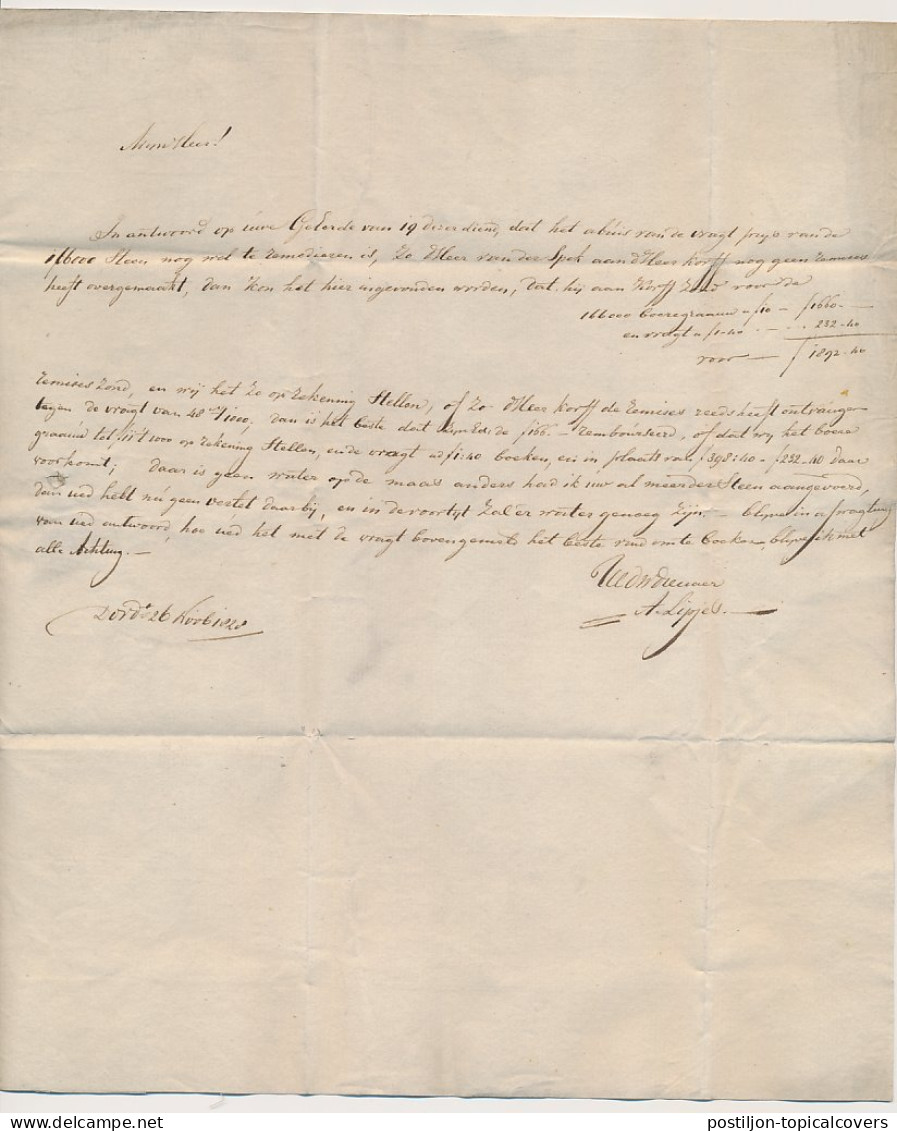 Mijn Heer!
In antwoord op uwe GeEerde van 19 dezer diend, dat het abuis van de vragt prijs van de
166000 Steen nog wel te remedieren is, Zo Heer van der Spek aan d'Heer Korff nog geen remises
heeft overgemaakt, dan kon het hier ingevonden worden, dat hij aan Korff Zond voor de
166000 boeregraauw a f10 — f1660.—
en vragt a f1-40 . — . . 232-40
voor — f1892-40
remises Zond, en wij het Zo op rekening Stellen, of Zo Heer Korff de remises reeds heeft ontvangen
tegen de vragt van 48 /1000, dan is het beste dat de f166.— rembourseerd, of dat wij het boere
graauw tot f11 't 1000 op rekening Stellen, en de vragt ad f1:40 boeken, en in plaats van f398:40 - f232-40 daar
voorkomt; daar is geen water op de maas anders had ik uw al meerder Steen aangevoerd,
dan ued hebt nu geen verlet daarbij, en in de voortijt Zal er water genoeg Zijn. — blijve in afwagting
van ued antwoord, hoe ued het met de vragt bovengemeld het beste vind om te boeken, blijve ik met
alle Achting. —
UEd Dw dienaar
A. Lipjes.
Dordt 26 Novb 1828
postiljon-topicalcovers